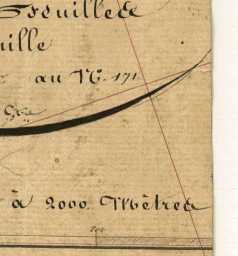 Feuille de
uille
au N.° 171
à 2000 Mètres